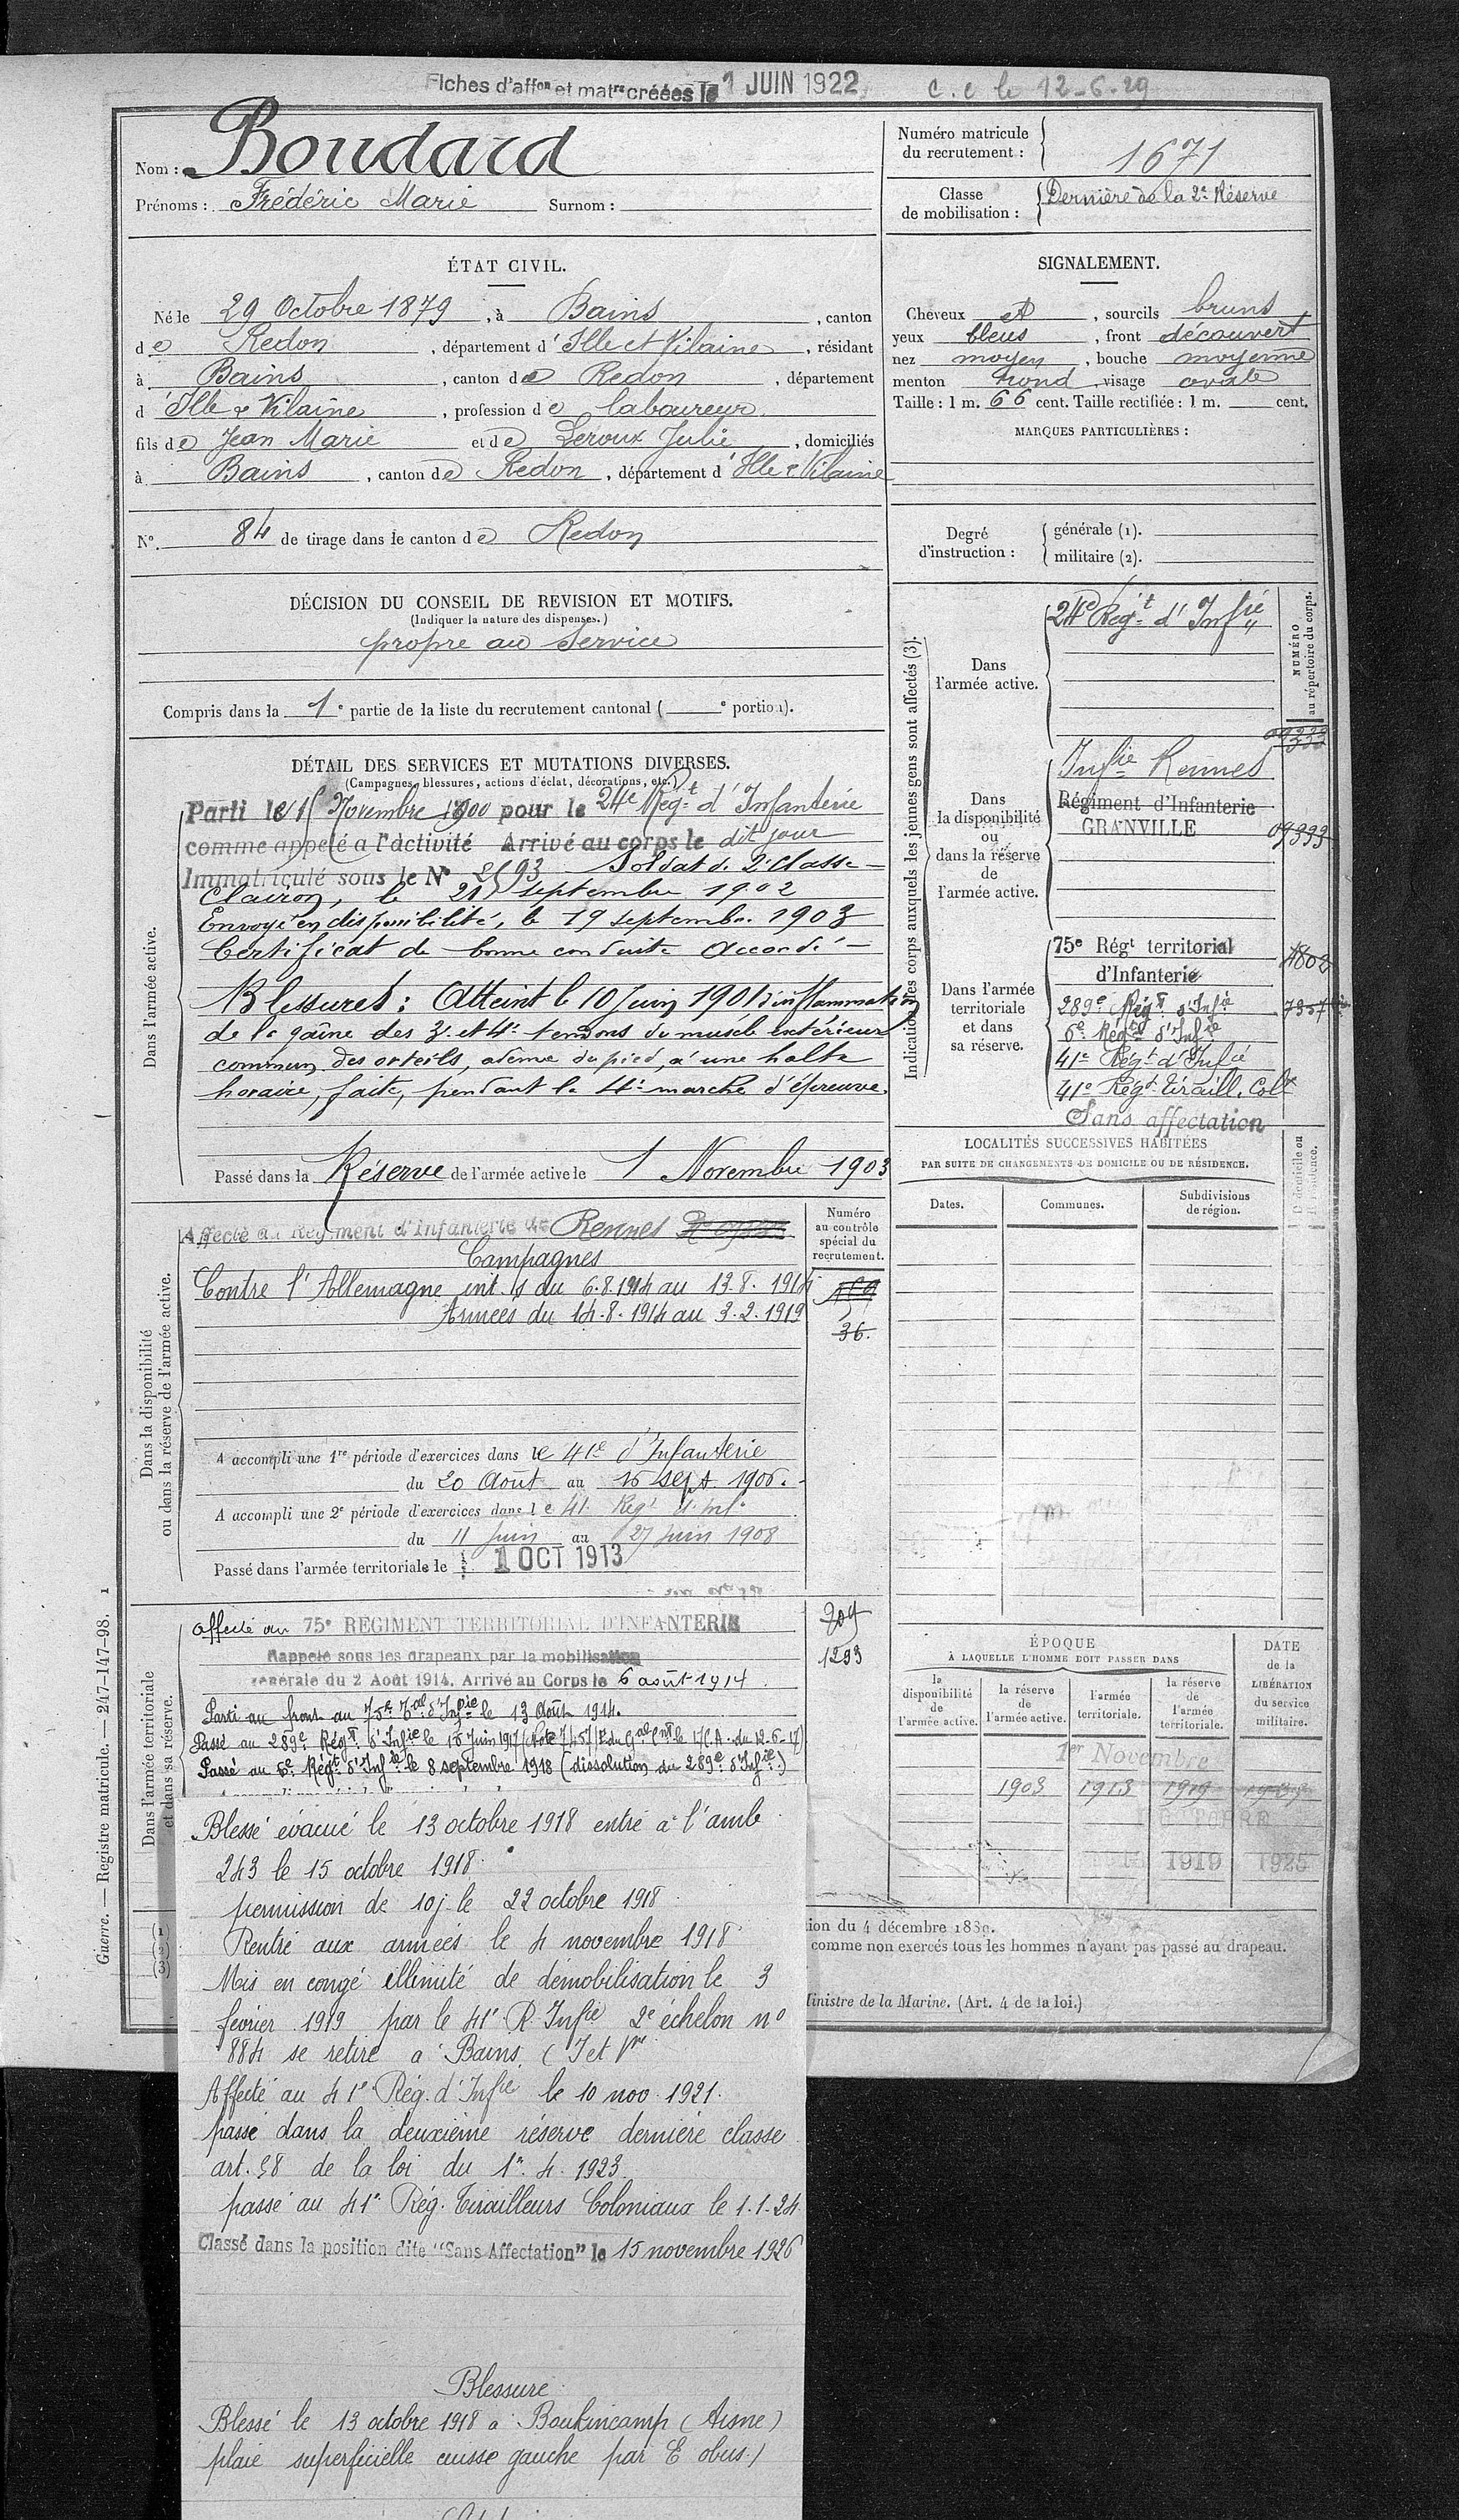 Fiches d'affon et matre créées le 1 JUIN 1922
c.c le 12-6-29
Nom : Boudard
Prénoms : Frédéric Marie Surnom :
Numéro matricule du recrutement : 1671
Classe de mobilisation : Dernière de la 2e Réserve
ÉTAT CIVIL.
Né le 29 Octobre 1879, à Bains, canton
de Redon, département d'Ille et Vilaine, résidant
à Bains, canton de Redon, département
d Ille & Vilaine, profession de laboureur
fils de Jean Marie et de Leroux Julie, domiciliés
à Bains, canton de Redon, département d'Ille & Vilaine
N° 84 de tirage dans le canton de Redon
SIGNALEMENT.
Cheveux et, sourcils bruns
yeux bleus, front découvert
nez moyen, bouche moyenne
menton rond, visage ovale
Taille : 1 m. 66 cent. Taille rectifiée : 1 m. cent.
MARQUES PARTICULIÈRES :
Degré d'instruction :
générale (1).
militaire (2).
DÉCISION DU CONSEIL DE REVISION ET MOTIFS.
(Indiquer la nature des dispenses.)
propre au service
Compris dans la 1e partie de la liste du recrutement cantonal ( e portion).
DÉTAIL DES SERVICES ET MUTATIONS DIVERSES.
(Campagnes, blessures, actions d'éclat, décorations, etc.)
Dans l'armée active.
Parti le 15 Novembre 1900 pour le 24e Régt d'Infanterie
comme appelé à l'activité Arrivé au corps le dit jour
Immatriculé sous le N° 2593 Soldat de 2e classe
Clairon, le 21 septembre 1902
Envoyé en disponibilité, le 19 septembre 1903
Certificat de bonne conduite Accordé
Blessures : Atteint le 10 Juin 1901 d'inflammation
de la gaîne des 3e et 4e tendons du muscle extérieur
commun des orteils, oedème du pied, à une halte
horaire, faite, pendant la 4e marche d'épreuve.
Passé dans la Réserve de l'armée active le 1 Novembre 1903
Indication des corps auxquels les jeunes gens sont affectés (3).
NUMÉRO au répertoire du corps.
Dans l'armée active.
24e Régt d'Infie
Dans la disponibilité ou dans la réserve de l'armée active.
Infie Rennes 09333
Régiment d'Infanterie
GRANVILLE 09333
Dans l'armée territoriale et dans sa réserve.
75e Régt territorial
d'Infanterie
289e Régt d'Infie
6e Régt d'Infie
41e Régt d'Infie
41e Régt Tiraill. Colx
Sans affectation
LOCALITÉS SUCCESSIVES HABITÉES
PAR SUITE DE CHANGEMENTS DE DOMICILE OU DE RÉSIDENCE.
Dates. Communes. Subdivisions de région.
Dans la disponibilité ou dans la réserve de l'armée active.
Numéro au contrôle spécial du recrutement.
Affecté au Régiment d'Infanterie de Rennes
Campagnes
Contre l'Allemagne int. s du 6.8.1914 au 13.8.1914
Armées du 14.8.1914 au 3.2.1919
36.
A accompli une 1re période d'exercices dans le 41e d'Infanterie
du 20 Août au 16 Sept 1906.
A accompli une 2e période d'exercices dans le 41 Régt d'Infie
du 11 Juin au 27 Juin 1908
Passé dans l'armée territoriale le 1 OCT 1913
Dans l'armée territoriale et dans sa réserve.
affecté au 75e RÉGIMENT TERRITORIAL D'INFANTERIE
209
1293
Rappelé sous les drapeaux par la mobilisation
générale du 2 Août 1914. Arrivé au Corps le 6 août 1914
Parti au front au 75e Tal d'Infie le 13 Août 1914.
Passé au 289e Régt d'Infie le 16 Juin 1917
Passé au 6e Régt d'Infie le 8 septembre 1918 (dissolution du 289e d'Infie.)
Blessé évacué le 13 octobre 1918 entré à l'amb
243 le 15 octobre 1918.
permission de 10j le 22 octobre 1918
Rentré aux armées le 4 novembre 1918
Mis en congé illimité de démobilisation le 3
février 1919 par le 41e R. Infie 2e échelon no
884 se retire à Bains (I et V
Affecté au 41e Rég. d'Infie le 10 nov 1921.
passé dans la deuxième réserve dernière classe
art. 58 de la loi du 1er. 4. 1923.
passé au 41e Rég. Tirailleurs Coloniaux le 1.1.24
Classé dans la position dite "Sans Affectation" le 15 novembre 1926
Blessure
Blessé le 13 octobre 1918 à Boukincamp (Aisne)
plaie superficielle cuisse gauche par E obus.)
ÉPOQUE
À LAQUELLE L'HOMME DOIT PASSER DANS
DATE de la LIBÉRATION du service militaire.
la disponibilité de l'armée active.
la réserve de l'armée active.
l'armée territoriale.
la réserve de l'armée territoriale.
1er Novembre
1903 1913 1919
1919 1925
ion du 4 décembre 1889.
comme non exercés tous les hommes n'ayant pas passé au drapeau.
Ministre de la Marine. (Art. 4 de la loi.)
Guerre. — Registre matricule. — 247-147-98. 1